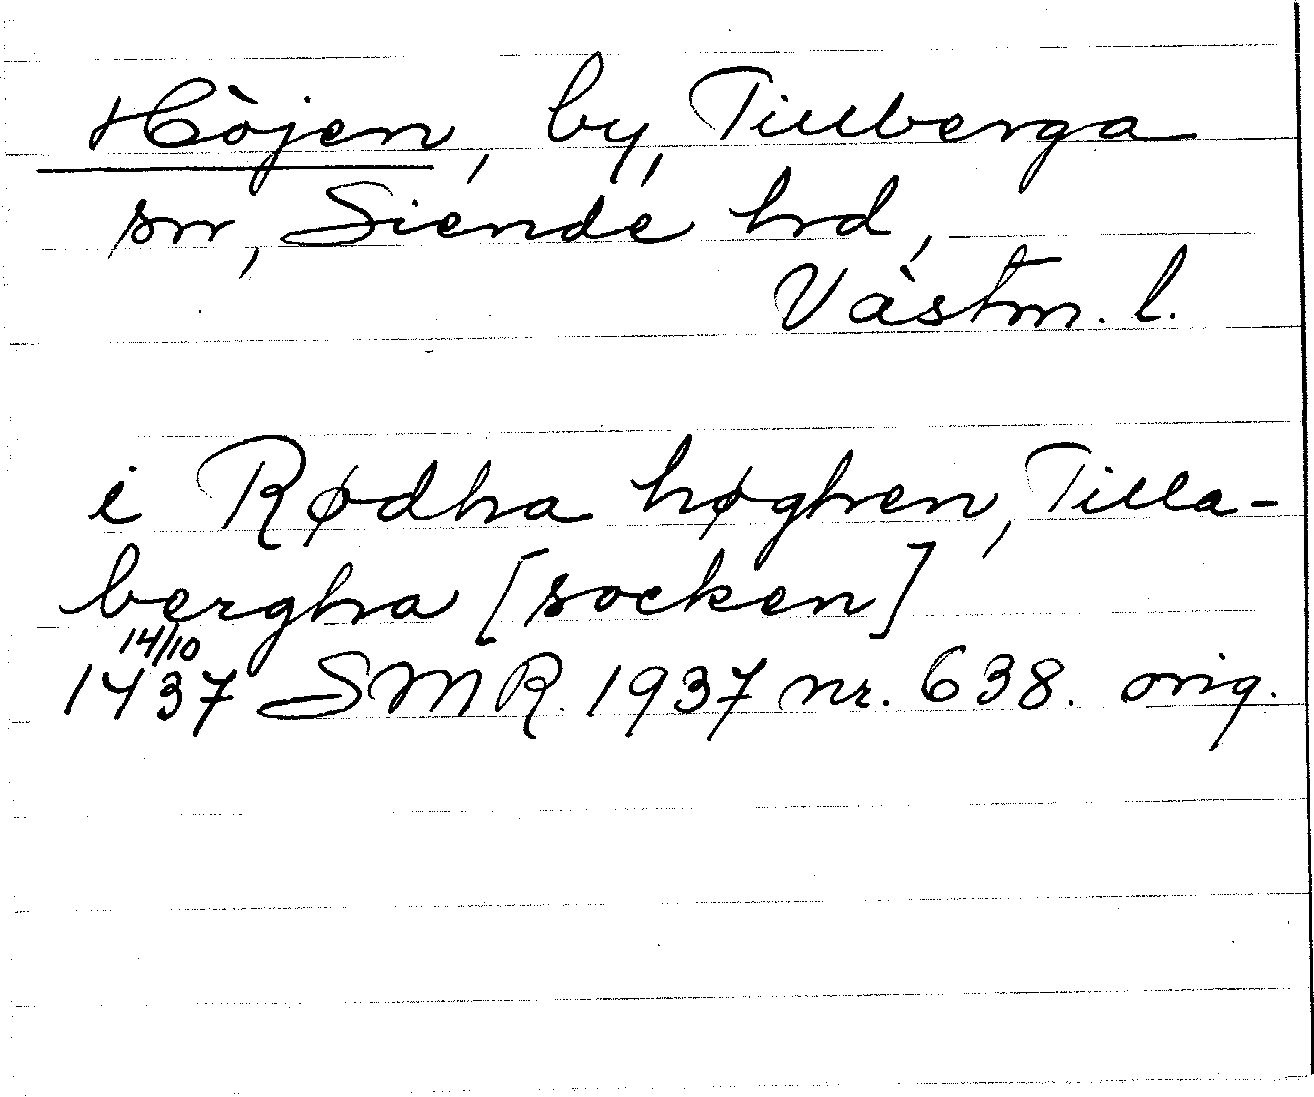 Höjen, by, Tillberga
sn, Siende hd,
Västm. l.
i Rødha høghen, Tilla-
bergha [socken]
14/10
1437 SMR 1937 nr. 638. orig.